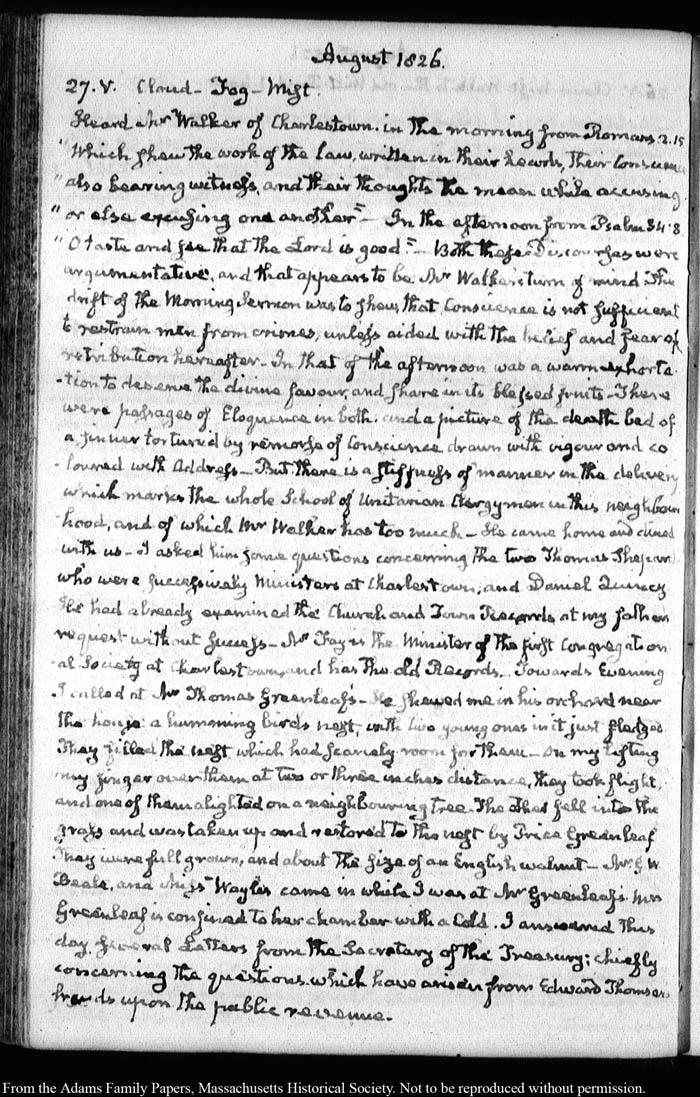 August 1826.
27. V. Cloud - Fog - Mist.
Heard a Mr Walker of Charlestown. in the morning from Romans 2.15
"Which shew the work of the law, written in their hearts, their Conscience
"also bearing witness, and their thoughts the mean while accusing
"or else excusing one another" - In the afternoon from Psalm 34.8
"O taste and see that the Lord is good" - Both these Discourses were
argumentative, and that appears to be Mr Walker's turn of mind The
drift of the Morning Sermon was to shew, that Conscience is not sufficient
to restrain men from crimes, unless aided with the belief and fear of
retribution hereafter - In that of the afternoon was a warm exhorta
-tion to deserve the divine favour, and share in its blessed fruits - There
were passages of Eloquence in both. and a picture of the death bed of
a sinner tortured by remorse of Conscience drawn with vigour and co
-loured with Address - But there is a stiffness of manner in the delivery
which marks the whole School of Unitarian Clergymen in this neighbour
hood, and of which Mr Walker has too much - He came home and dined
with us - I asked him some questions concerning the two Thomas Shepard
who were successively Ministers at Charlestown, and Daniel Quincy
He had already examined the Church and Town Records at my father's
request without success - Mr Fay is the Minister of the first Congregation
-al Society at Charlestown, and has the old Records. Towards Evening
I called at Mr Thomas Greenleaf's - He shewed me in his orchard near
the house a humming birds nest, with two young ones in it just fledged
They filled the nest which had scarcely room for them - On my lifting
my finger over them at two or three inches distance, they took flight,
and one of them alighted on a neighbouring tree. The other fell into the
grass and was taken up and restored to the nest by Price Greenleaf
They were full grown, and about the size of an English walnut - Mr G. W.
Beale, and Miss Wayles came in while I was at Mr Greenleaf's. Mrs
Greenleaf is confined to her chamber with a Cold. I answered this
day several Letters from the Secretary of the Treasury; chiefly
concerning the questions which have arisen from Edward Thomson's
frauds upon the public revenue.
From the Adams Family Papers, Massachusetts Historical Society. Not to be reproduced without permission.